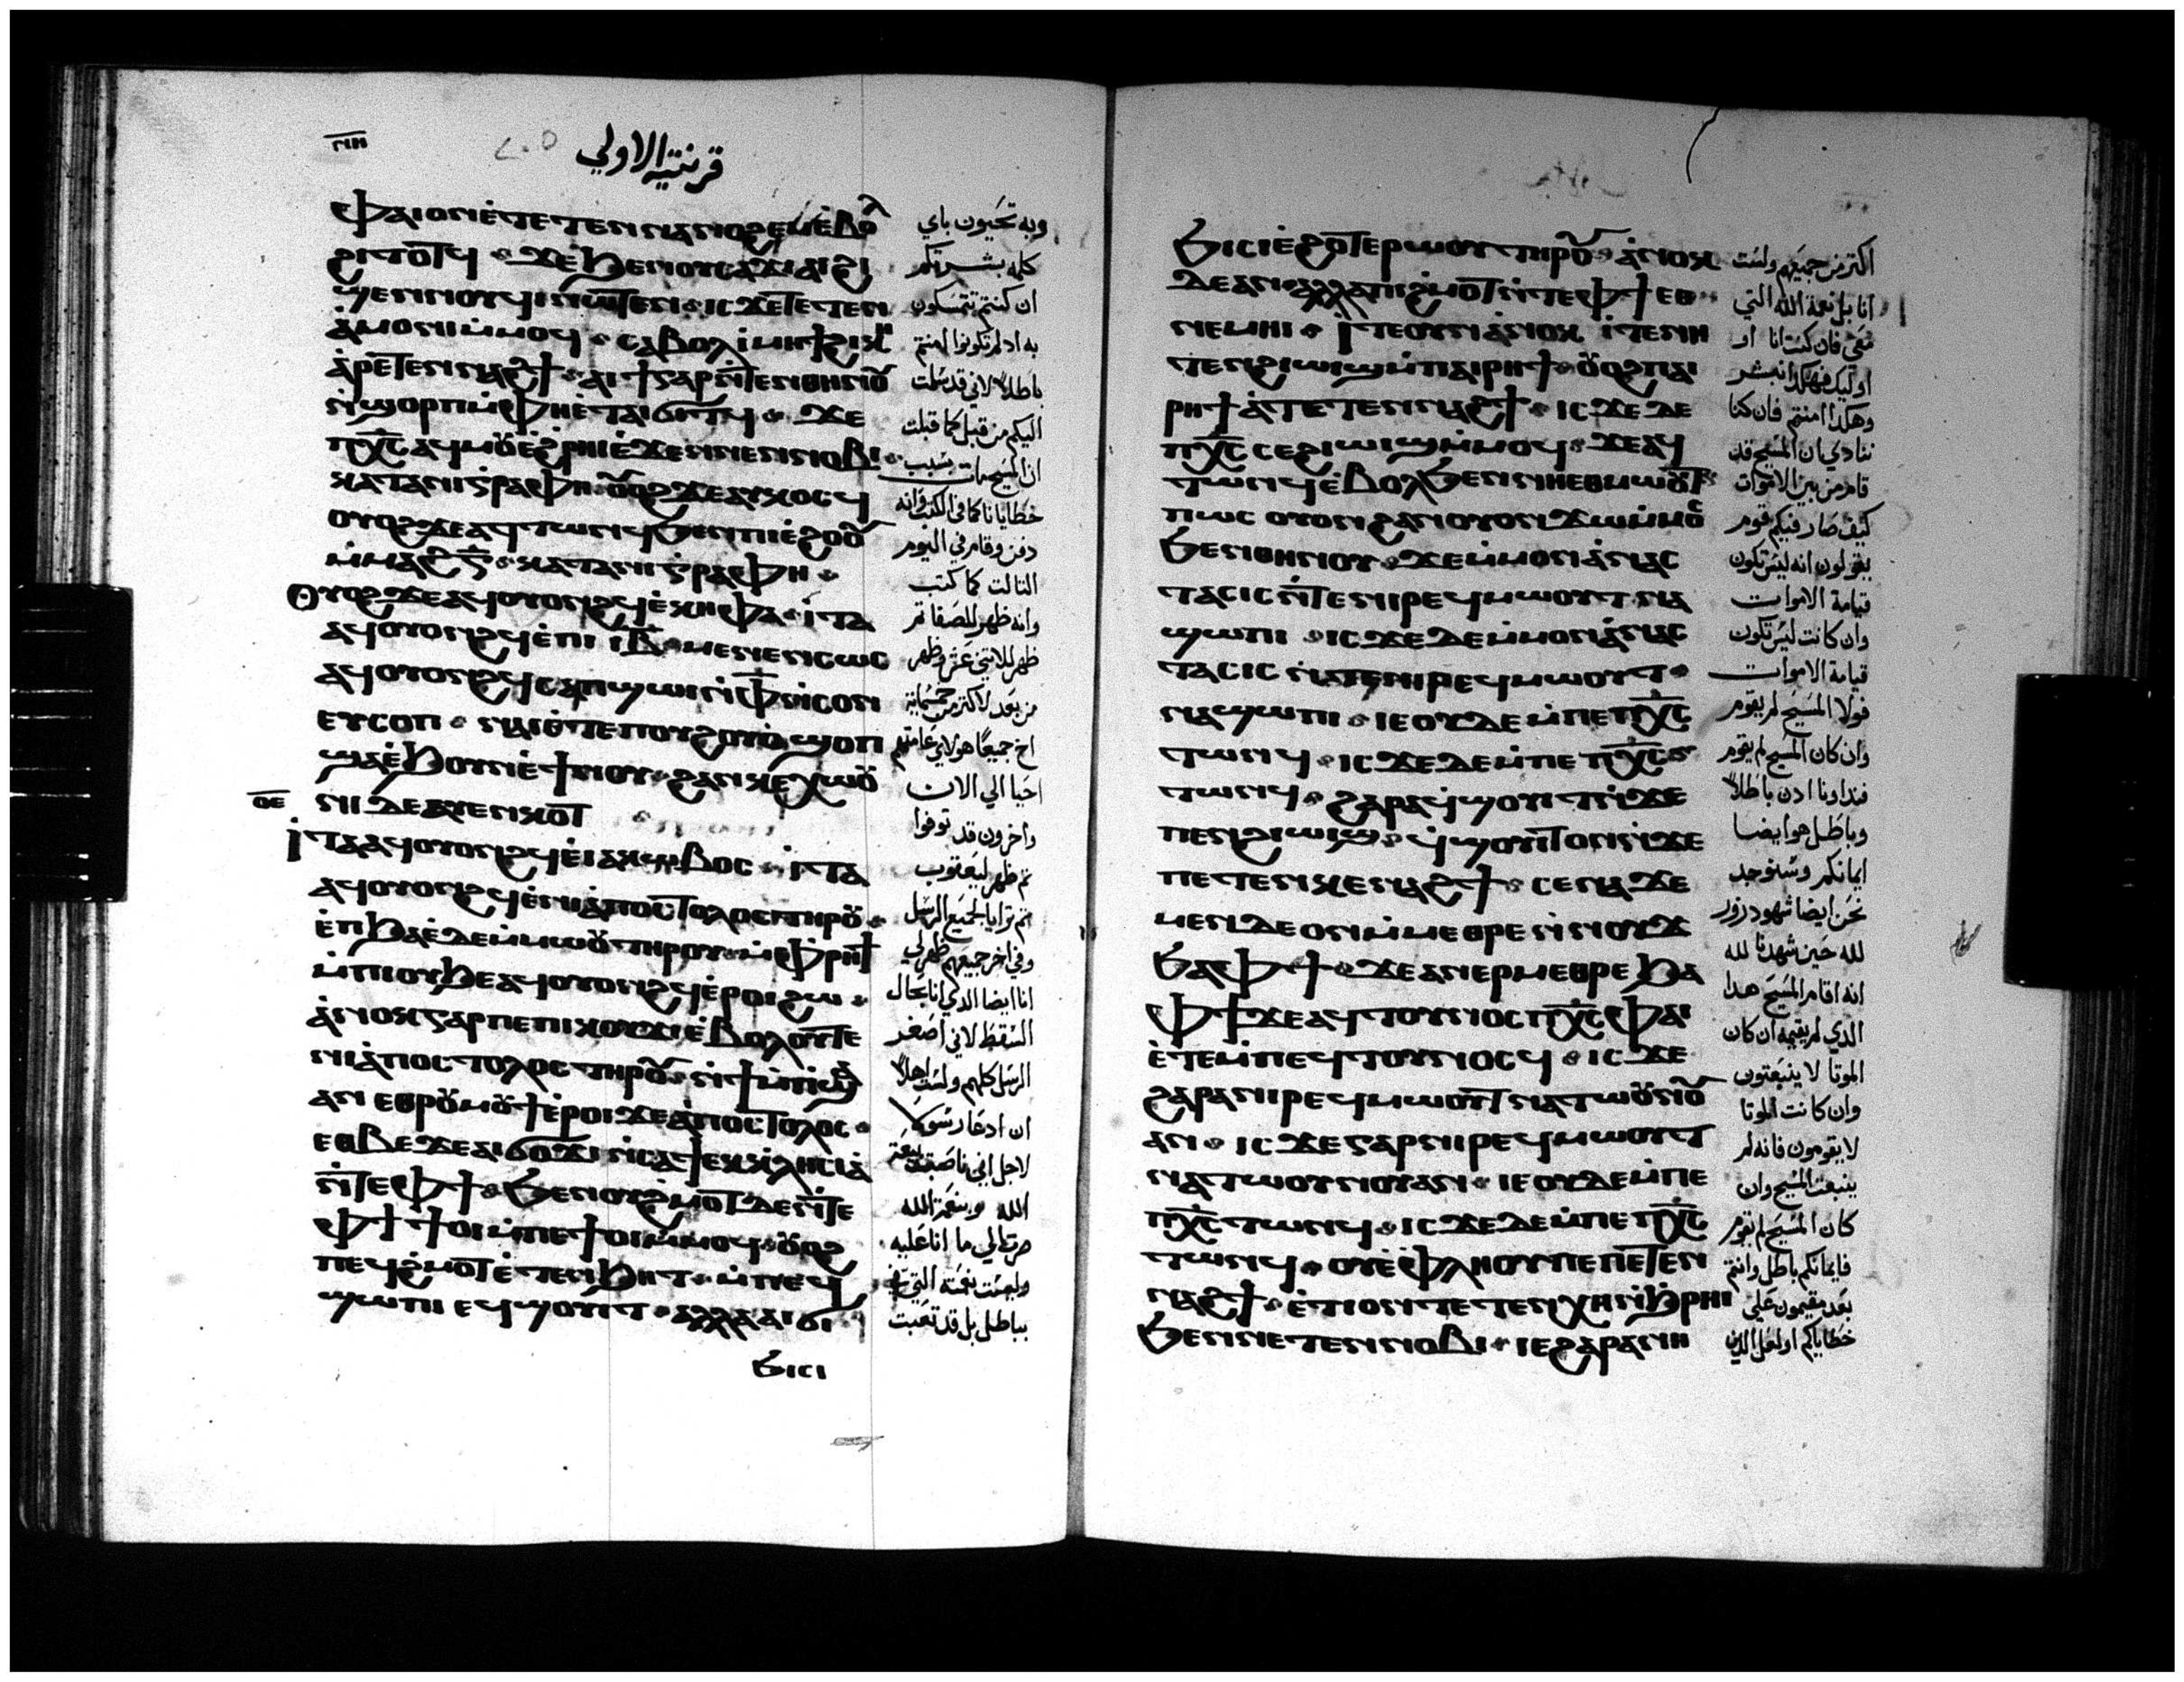 ⲣⲓⲏ
قرنتيه الاولي
ⲫⲁⲓ ⲟⲛ ⲉ̀ⲧⲉⲧⲉⲛⲛⲁⲛⲟϩⲉⲙ ⲉ̀ⲃⲟⲗ
ϩⲓⲧⲟⲧϥ ϫⲉ ϧⲉⲛ ⲟⲩⲥⲁϫⲓ ⲁⲓϩⲓ
ϣⲉⲛⲛⲟⲩϥⲓ ⲛⲱⲧⲉⲛ ⲓⲥϫⲉ ⲧⲉⲧⲉⲛ
ⲁ̀ⲙⲟⲛⲓ ⲙ̀ⲙⲟϥ ⲥⲁⲃⲟⲗ ⲓ̀ⲙⲏϯ ϩⲓⲕⲏ
ⲁ̀ⲣⲉⲧⲉⲛⲛⲁϩϯ ⲁⲓϯ ⲅⲁⲣ ⲛ̀ⲧⲉⲛⲑⲏⲛⲟⲩ
ⲛ̀ϣⲟⲣⲡ ⲙ̀ⲫⲏ ⲉ̀ⲧⲁⲓϭⲓⲧϥ ϫⲉ
ⲡⲭ̅ⲥ̅ ⲁϥⲙⲟⲩ ⲉ̀ϩ̀ⲣⲏⲓ ⲉ̀ϫⲉⲛ ⲛⲉⲛⲛⲟⲃⲓ
ⲕⲁⲧⲁ ⲛⲓⲅ̀ⲣⲁⲫⲏ ⲟⲩⲟϩ ϫⲉ ⲁⲩⲕⲟⲥϥ
ⲟⲩⲟϩ ϫⲉ ⲁϥⲧⲱⲛϥ ϧⲉⲛ ⲡⲓⲉ̀ϩⲟⲟⲩ
ⲙ̀ⲙⲁϩ ⲅ̅ ⲕⲁⲧⲁ ⲛⲓⲅ̀ⲣⲁⲫⲏ
Ⲟⲩⲟϩ ϫⲉ ⲁϥⲟⲩⲟⲛϩϥ ⲉ̀ⲕⲏⲫⲁ ⲓ̀ⲧⲁ
ⲁϥⲟⲩⲟⲛϩϥ ⲉ̀ⲡⲓ ⲓ̅ⲃ̅ ⲙⲉⲛⲉⲛⲥⲱⲥ
ⲁϥⲟⲩⲟⲛϩϥ ⲥⲁⲡϣⲱⲓ ⲛ̀ⲫ̅ ⲛ̀ⲥⲟⲛ
ⲉⲩⲥⲟⲡ ⲛⲁⲓ ⲉ̀ⲧⲉ ⲡⲟⲩϩⲟⲩⲟ̀ ϣⲟⲡ
ϣⲁ ⲉ̀ϧⲟⲩⲛ ⲉ̀ϯⲛⲟⲩ ϩⲁⲛⲕⲉⲭⲱⲟⲩ
ⲟ̅ⲉ̅
ⲛⲓ ⲇⲉ ⲁⲩⲉⲛⲕⲟⲧ
Ⲓⲧⲁ ⲁϥⲟⲩⲟⲛϩϥ ⲉ̀ⲓⲁⲕⲱⲃⲟⲥ ⲓ̀ⲧⲁ
ⲁϥⲟⲩⲟⲛϩϥ ⲉ̀ⲛⲓⲁ̀ⲡⲟⲥⲧⲟⲗⲟⲥ ⲧⲏⲣⲟⲩ
ⲉ̀ⲡϧⲁⲉ̀ ⲇⲉ ⲙ̀ⲙⲱⲟⲩ ⲧⲏⲣⲟⲩ ⲙ̀ⲫ̀ⲣⲏϯ
ⲙ̀ⲡⲓⲟⲩϧⲉ ⲁϥⲟⲩⲟⲛϩϥ ⲉ̀ⲣⲟⲓ ϩⲱ
ⲁ̀ⲛⲟⲕ ⲅⲁⲣ ⲡⲉ ⲡⲓⲕⲟⲩϫⲓ ⲉ̀ⲃⲟⲗ ⲟⲩⲧⲉ
ⲛⲓⲁ̀ⲡⲟⲥⲧⲟⲗⲟⲥ ⲧⲏⲣⲟⲩ ⲛ̀ϯⲙ̀ⲡϣⲁ
ⲁⲛ ⲉⲑⲣⲟⲩⲙⲟⲩϯ ⲉ̀ⲣⲟⲓ ϫⲉ ⲁ̀ⲡⲟⲥⲧⲟⲗⲟⲥ
ⲉⲑⲃⲉ ϫⲉ ⲁⲓϭⲟϫⲓ ⲛ̀ⲥⲁ ϯⲉⲕⲕⲗⲏⲥⲓⲁ̀
ⲛ̀ⲧⲉ ⲫϯ ϧⲉⲛ ⲟⲩϩ̀ⲙⲟⲧ ⲇⲉ ⲛ̀ⲧⲉ
ⲫϯ ϯⲟⲓ ⲙ̀ⲡⲉϯⲟⲓ ⲙ̀ⲙⲟϥ ⲟⲩⲟϩ
ⲡⲉϥϩ̀ⲙⲟⲧ ⲉ̀ⲧⲉⲛϧⲏⲧ ⲙ̀ⲡⲉϥ
ϣⲱⲡⲓ ⲉϥϣⲟⲩⲓⲧ ⲁⲗⲗⲁ ⲁⲓϭⲓ
ϧⲓⲥⲓ
وبه تحيون باي
كلمه بشرتكم
ان كنتم تتمسكون
به اد لم تكونوا امنتم
باطلاً لاني قد سلمت
اليكم من قبل كما قبلت
ان المسيح مات بسبب
خطايانا كما في الكتب وانه
دفن وقام في اليوم
التالت كما كتب
وانه ظهر للصفا تم
ظهر للاتني عشر وظهر
من بعد لاكتر من خمسمايه
اخ جميعًا هولاي عامتهم
احيا الي الان
واخرون قد توفوا
تم ظهر ليعقوب
تم ترايا لجميع الرسل
وفي اخر جميعهم ظهر لي
انا ايضا الدي انا بحال
السقط لاني اصغر
الرسل كلهم ولست اهلاً
ان ادعا رسولا
لاجل اني ناصبت بيعة
الله وبنعمة الله
صرت الي ما انا عليه
وليست نعمته التي في
بباطل بل قد تعبت
ϧⲓⲥⲓ ⲉ̀ϩⲟⲧⲉⲣⲱⲟⲩ ⲧⲏⲣⲟⲩ ⲁ̀ⲛⲟⲕ
ⲇⲉ ⲁⲛ ⲁⲗⲗⲁ ⲡⲓϩ̀ⲙⲟⲧ ⲛ̀ⲧⲉ ⲫϯ ⲉⲑ
ⲛⲉⲙⲏⲓ Ⲓⲧⲉ ⲟⲩⲛ ⲁ̀ⲛⲟⲕ ⲓ̀ⲧⲉ ⲛⲏ
ⲧⲉⲛϩⲓⲱⲓϣ ⲙ̀ⲡⲁⲓⲣⲏϯ ⲟⲩⲟϩ ⲡⲁⲓ
ⲣⲏϯ ⲁ̀ⲧⲉⲧⲉⲛⲛⲁϩϯ ⲓⲥϫⲉ ⲇⲉ
ⲡⲭ̅ⲥ̅ ⲥⲉϩⲓⲱⲓϣ ⲙ̀ⲙⲟϥ ϫⲉ ⲁϥ
ⲧⲱⲛϥ ⲉ̀ⲃⲟⲗ ϧⲉⲛ ⲛⲏⲉⲑⲙⲱⲟⲩⲧ
ⲡⲱⲥ ⲟⲩⲟⲛ ϩⲁⲛⲟⲩⲟⲛ ϫⲱ ⲙ̀ⲙⲟⲥ
ϧⲉⲛ ⲑⲏⲛⲟⲩ ϫⲉ ⲙ̀ⲙⲟⲛ ⲁ̀ⲛⲁⲥ
ⲧⲁⲥⲓⲥ ⲛ̀ⲧⲉ ⲛⲓⲣⲉϥⲙⲱⲟⲩⲧ ⲛⲁ
ϣⲱⲡⲓ ⲓⲥϫⲉ ⲇⲉ ⲙ̀ⲙⲟⲛ ⲁ̀ⲛⲁⲥ
ⲧⲁⲥⲓⲥ ⲛ̀ⲧⲉ ⲛⲓⲣⲉϥⲙⲱⲟⲩⲧ
ⲛⲁϣⲱⲡⲓ ⲓⲉ ⲟⲩⲇⲉ ⲙ̀ⲡⲉ ⲡⲭ̅ⲥ̅
ⲧⲱⲛϥ ⲓⲥϫⲉ ⲇⲉ ⲙ̀ⲡⲉ ⲡⲭ̅ⲥ̅
ⲧⲱⲛϥ ϩⲁⲣⲁ ϥ̀ϣⲟⲩⲓⲧ ⲛ̀ϫⲉ
ⲡⲉⲛϩⲓⲱⲓϣ ϥ̀ϣⲟⲩⲓⲧ ⲟⲛ ⲛ̀ϫⲉ
ⲡⲉⲧⲉⲛⲕⲉⲛⲁϩϯ ⲥⲉⲛⲁϫⲉ
ⲙⲉⲛ ⲇⲉ ⲟⲛ ⲙ̀ⲙⲉⲑⲣⲉ ⲛ̀ⲛⲟⲩϫ
ϧⲁ ⲫϯ ϫⲉ ⲁⲛⲉⲣⲙⲉⲑⲣⲉ ϧⲁ
ⲫϯ ϫⲉ ⲁϥⲧⲟⲩⲛⲟⲥ ⲡⲭ̅ⲥ̅ ⲫⲁⲓ
ⲉ̀ⲧⲉ ⲙ̀ⲡⲉϥⲧⲟⲩⲛⲟⲥϥ ⲓⲥϫⲉ
ϩⲁⲣⲁ ⲛⲓⲣⲉϥⲙⲱⲟⲩⲧ ⲛⲁⲧⲱⲟⲩⲛⲟⲩ
ⲁⲛ ⲓⲥϫⲉ ⲅⲁⲣ ⲛⲓⲣⲉϥⲙⲱⲟⲩⲧ
ⲛⲁⲧⲱⲟⲩⲛⲟⲩ ⲁⲛ ⲓⲉ ⲟⲩⲇⲉ ⲙ̀ⲡⲉ
ⲡⲭ̅ⲥ̅ ⲧⲱⲛϥ ⲓⲥϫⲉ ⲇⲉ ⲙ̀ⲡⲉ ⲡⲭ̅ⲥ̅
ⲧⲱⲛϥ ⲟⲩⲉ̀ⲫⲗⲏⲟⲩ ⲡⲉ ⲡⲉⲧⲉⲛ
ⲛⲁϩϯ ⲉ̀ⲧⲓ ⲟⲛ ⲧⲉⲧⲉⲛⲭⲏ ⲛ̀ϧ̀ⲣⲏⲓ
ϧⲉⲛ ⲛⲉⲧⲉⲛⲛⲟⲃⲓ ⲓⲉ ϩⲁⲣⲁ ⲛⲏ
اكتر من جميعهم ولست
انا بل نعمة الله التي
معي فان كنت انا او
اوليك فهكدا نبشر
وهكدا امنتم فان كنا
ننادي ان المسيح قد
قام من بين الاموات
كيف صار فيكم قوم
يقولون انه ليس تكون
قيامة الاموات
وان كانت ليس تكون
قيامة الاموات
فولا المسيح لم يقوم
وان كان المسيح لم يقوم
فنداونا ادن باطلاً
وباطل هو ايضا
ايمانكم وسنوجد
نحن ايضا شهود زور
لله حين شهدنا لله
انه اقام المسيح هدا
الدي لم يقيمه ان كان
الموتا لا ينبعتون
وان كانت الموتا
لا يقومون فانه لم
ينبعت المسيح وان
كان المسيح لم يقوم
فايمانكم باطل وانتم
بعد مقيمون علي
خطاياكم او لعل الدين